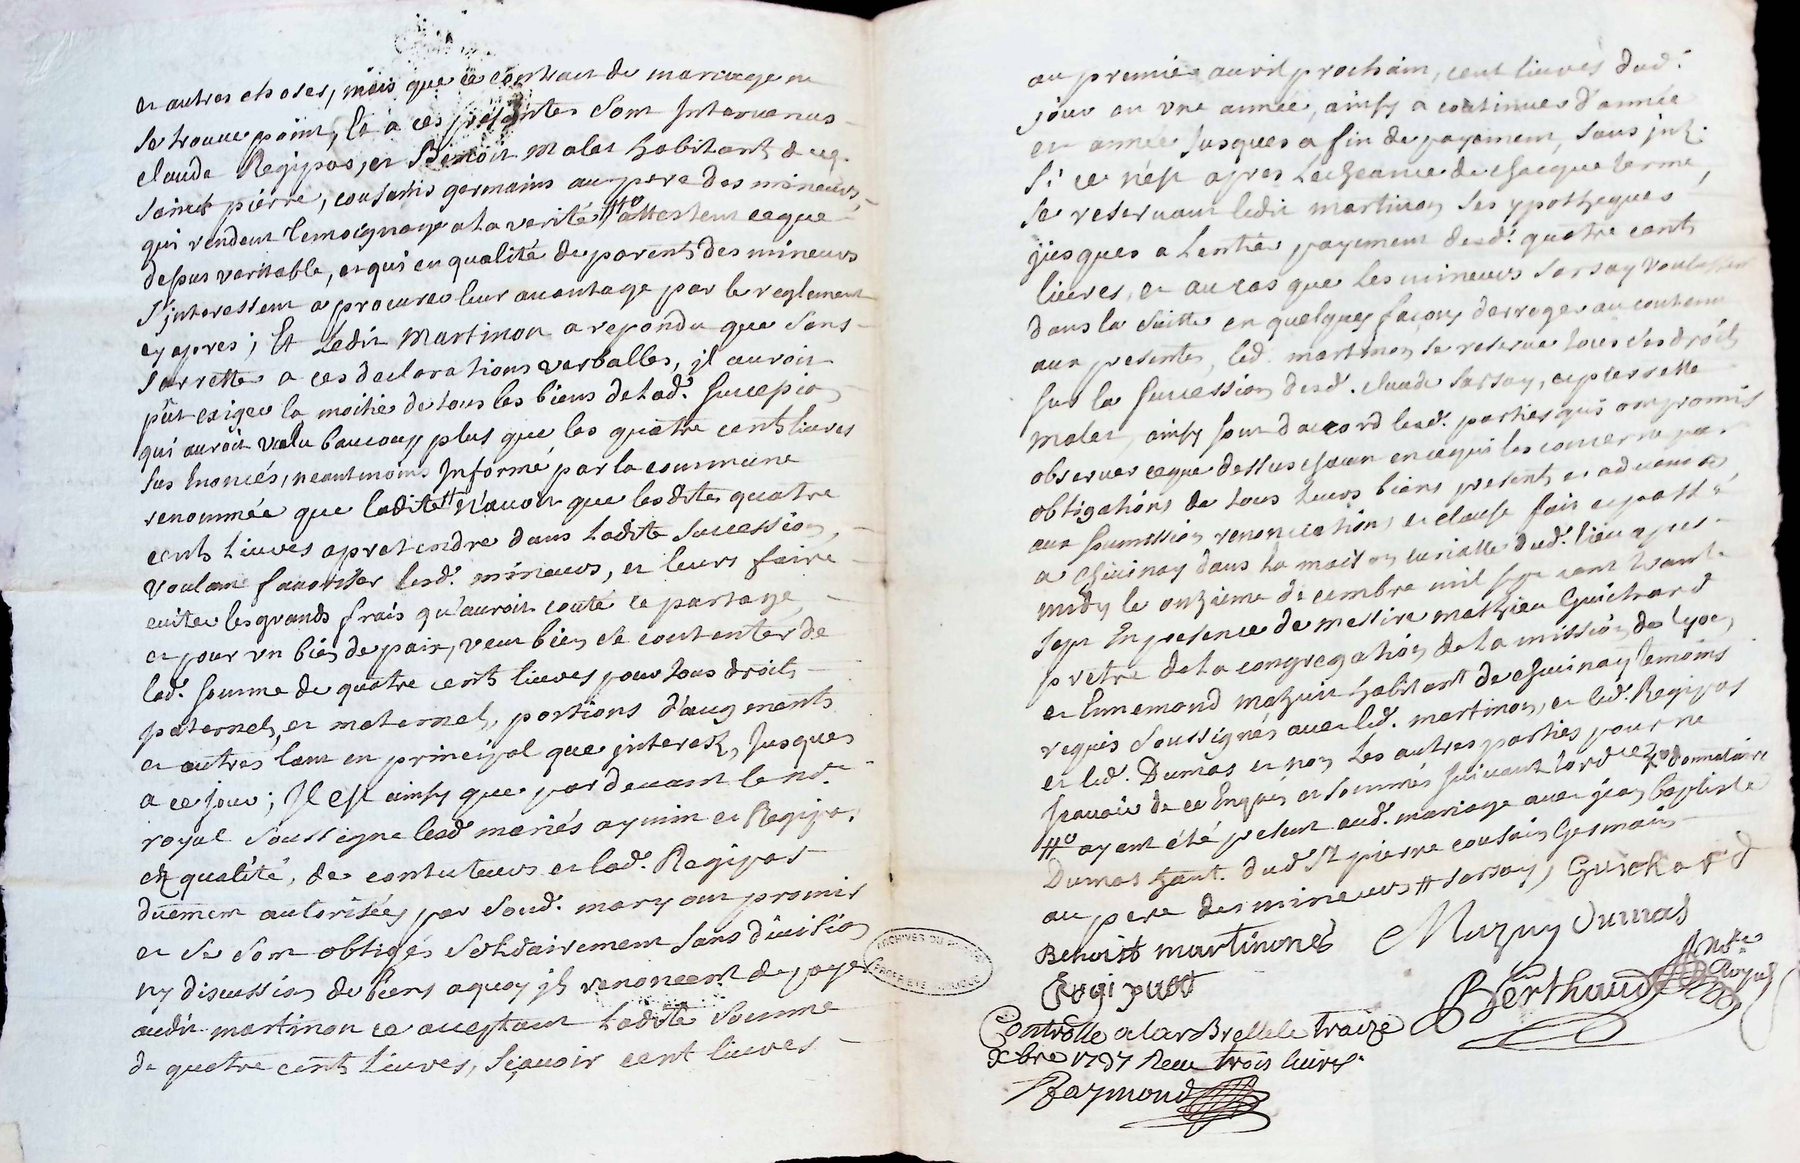 et autres choses, mais que ce contract de mariage ne
se trouve point, Et a ces presentes sont Intervenus
claude Regipas, et Benoit malet habitants dud.
sainct pierre, cousains germains au pere des mineurs,
qui rendent temoignage a la verité #o attestent ce que
desus veritable, et qui en qualité de parents des mineurs
s'jnteressent a procurer leur avantage par le reglement
cy apres ; Et Ledit Martinon a repondu que sans
s'arretter a ces declarations verballes, jl auroit
put exiger la moitié de tous les biens de lad. succession
qui auroit valu baucoup plus que les quatre cents livres
sus Enoncés, neantmoins Informé par la commune
renommée que ladite # n'avoit que lesdites quatre
cents livres a pretendre dans Ladite succession,
voulant favoriser lesd. mineurs, et leurs faire
eviter les grands frais qu'auroit couté ce partage,
et pour un bien de paix, veut bien se contenter de
lad. somme de quatre cents livres pour tous droits
paternels, et maternels, portions d'augments
et autres tant en principal que jnterets, Jusques
a ce jour ; Jl est ainsy que par devant le nore
royal soussigné lesd. mariés aymin et Regipas
en qualité, de contuteurs et lad. Regipas
duement autorisée, par soud. mary ont promis
et se sont obligés solidairement sans division
ny discussion de biens a quoy jls renoncent de payer
audit martinon ce acceptant Ladite somme
de quatre cents livres, sçavoir cent livres
au premier avril prochain, cent livres dud.
jour en une année, ainsy a continuer d'année
en année Jusques a fin de payement, sans jnt.
si ce n'est apres L'echeance de chacque terme,
se reservant ledit martinon ses ypotheques
jusques a L'entier payement desd. quatre cents
livres, et au cas que les mineurs sarsay voulussent
dans la suitte en quelques façons derroger au contenu
aux presentes, led. martinon se reserve tous ses droits
sur la succession desd. claude sarsay, et pierrette
malet, ainsy sont d'accord lesd. parties qui ont promis
observer ce que dessus chacun en ce qui les concerne par
obligations de tous leurs biens presents et advenir
aux soumission renonciations et clause fait et passé
a chivinay dans la maison curialle dud. lieu apres
midy le onzieme decembre mil sept cent trante
sept En presence de messire mathieu Guichard
pretre de la congregation de la mission de lyon,
et Ennemond mazuir habitant de chivinay temoins
requis soussignés avec led. martinon, et led. Regipas
et led. Dumas et non Les autres parties pour ne
sçavoir de ce Enquis et sommés suivant l'ordce #o donnataire
#o ayant été present aud. mariage avec jean baptiste
Dumas habt. dud. st pierre cousain germain
au pere des mineurs # sarsay, Guichard
Benoist martinon Mazuy Dumas
Regipas
Berthaud Nore Royal
Controllé a larbrelle le traize
xbre 1737 Receu trois livres
Raymond